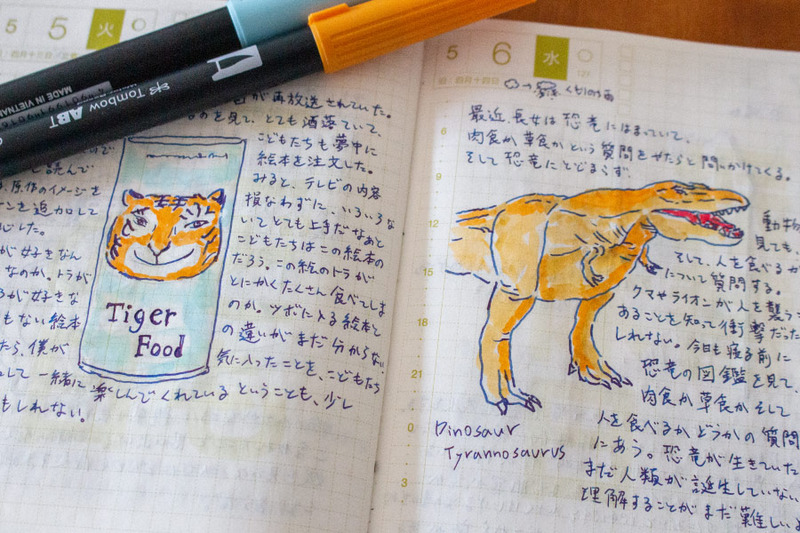 5
5
火
MADE IN VIETNAM
Tombow ABT
が再放送されていた。
を見て、とても洒落ていて、
こどもたちも夢中に
絵本を注文した。
みると、テレビの内容
損なわずに、いろいろな
いてとても上手だなあと
こどもたちはこの絵本の
だろう。この絵のトラが
とにかくたくさん食べてしま
のか。ツボに入る絵本と
の違いがまだ分からない。
気に入ったことを、こどもたち
読んで
原作のイメージを
ーンを追加して
心した。
が好きなん
なのか。トラが
るが好きな
もない絵本
たら、僕が
して一緒に楽しんでくれているということも、少し
もしれない。
Tiger
Food
5
6
水
127
旧:四月十四日
6
9
12
15
18
21
0
3
最近、長女は恐竜にはまっていて、
肉食か草食かという質問をやたらと問いかけてくる。
そして恐竜にとどまらず
動物
見ても、
そして、人を食べるか
について質問する。
クマやライオンが人を襲う
あることを知って衝撃だった
しれない。今日も寝る前に
恐竜の図鑑を見て、
肉食か草食かそして
人を食べるかどうかの質問
にあう。恐竜が生きていた
まだ人類が誕生していない
理解することがまだ難しいよ
Dinosaur
Tyrannosaurus